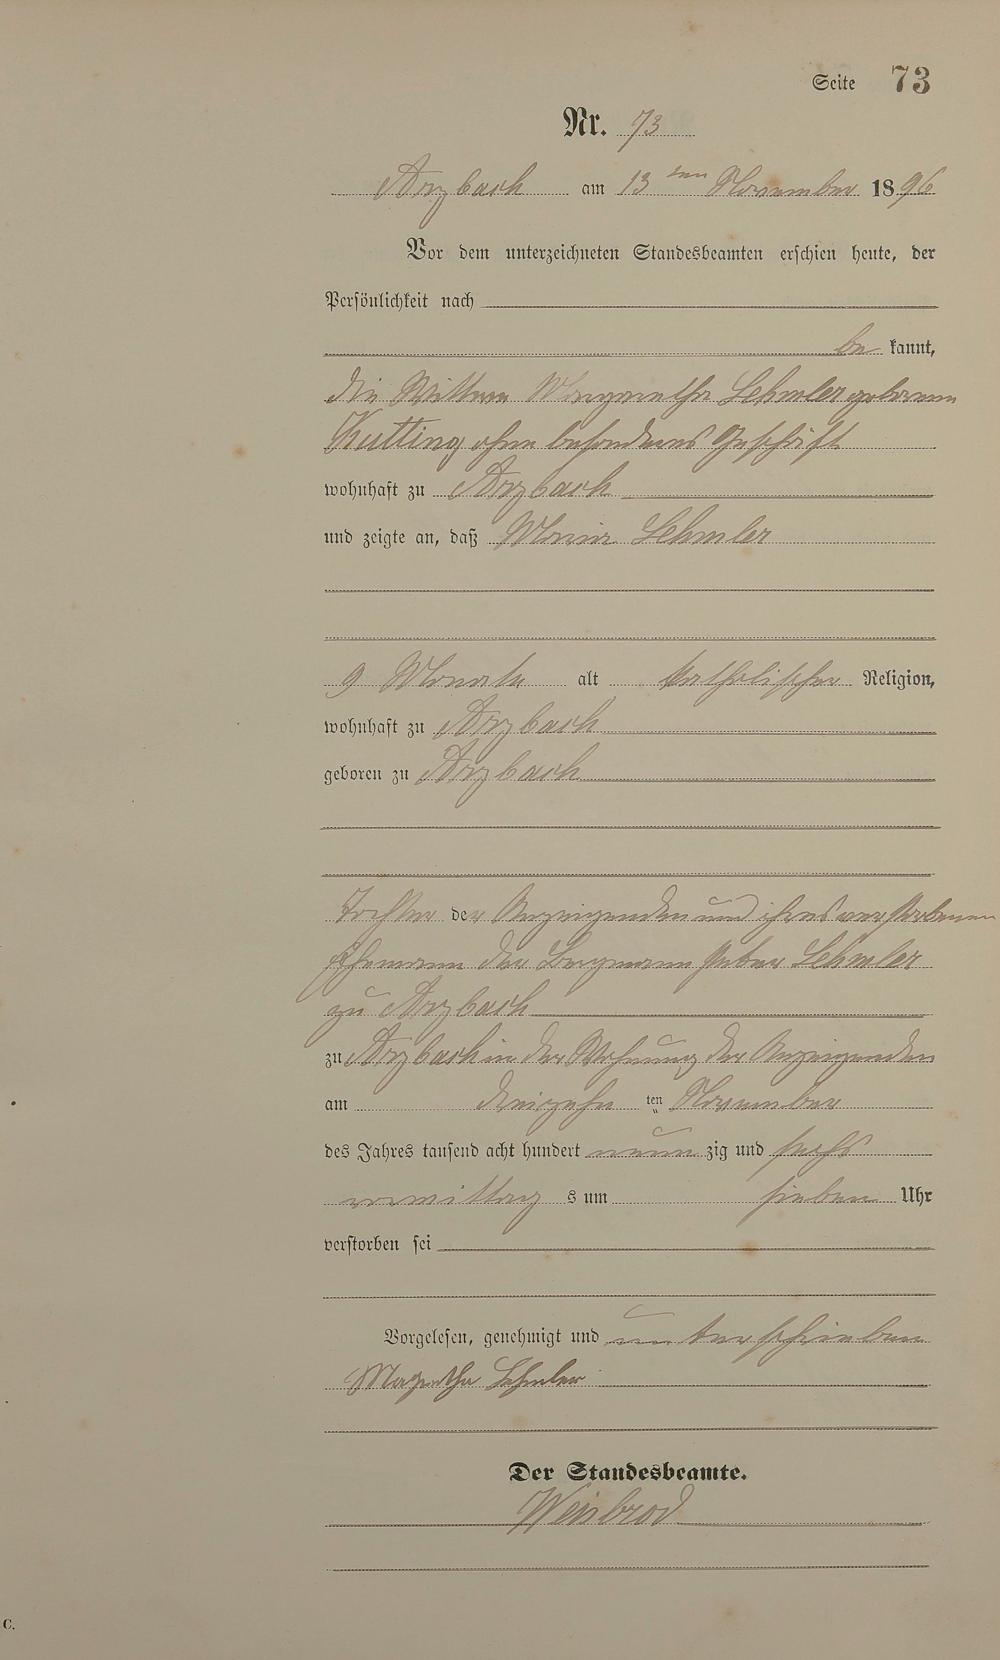 Seite 73
Nr. 73
Arzbach am 13 ten November 1896
Vor dem unterzeichneten Standesbeamten erschien heute, der
Persönlichkeit nach
be kannt,
die Wittwe Margaretha Lehmler geborene
Kutting ohne besonderes Geschäft
wohnhaft zu Arzbach
und zeigte an, daß Maria Lehmler
9 Monate alt katholischer Religion,
wohnhaft zu Arzbach
geboren zu Arzbach
Tochter der Anzeigenden und ihres verstorbenen
Ehemann der Bergmann Peter Lehmler
zu Arzbach
zu Arzbach in der Wohnung der Anzeigenden
am dreizehn ten November
des Jahres tausend acht hundert neun zig und sechs
vormittag s um sieben Uhr
verstorben sei
Vorgelesen, genehmigt und unterschrieben
Lehmler
Der Standesbeamte.
Weisbrod
C.